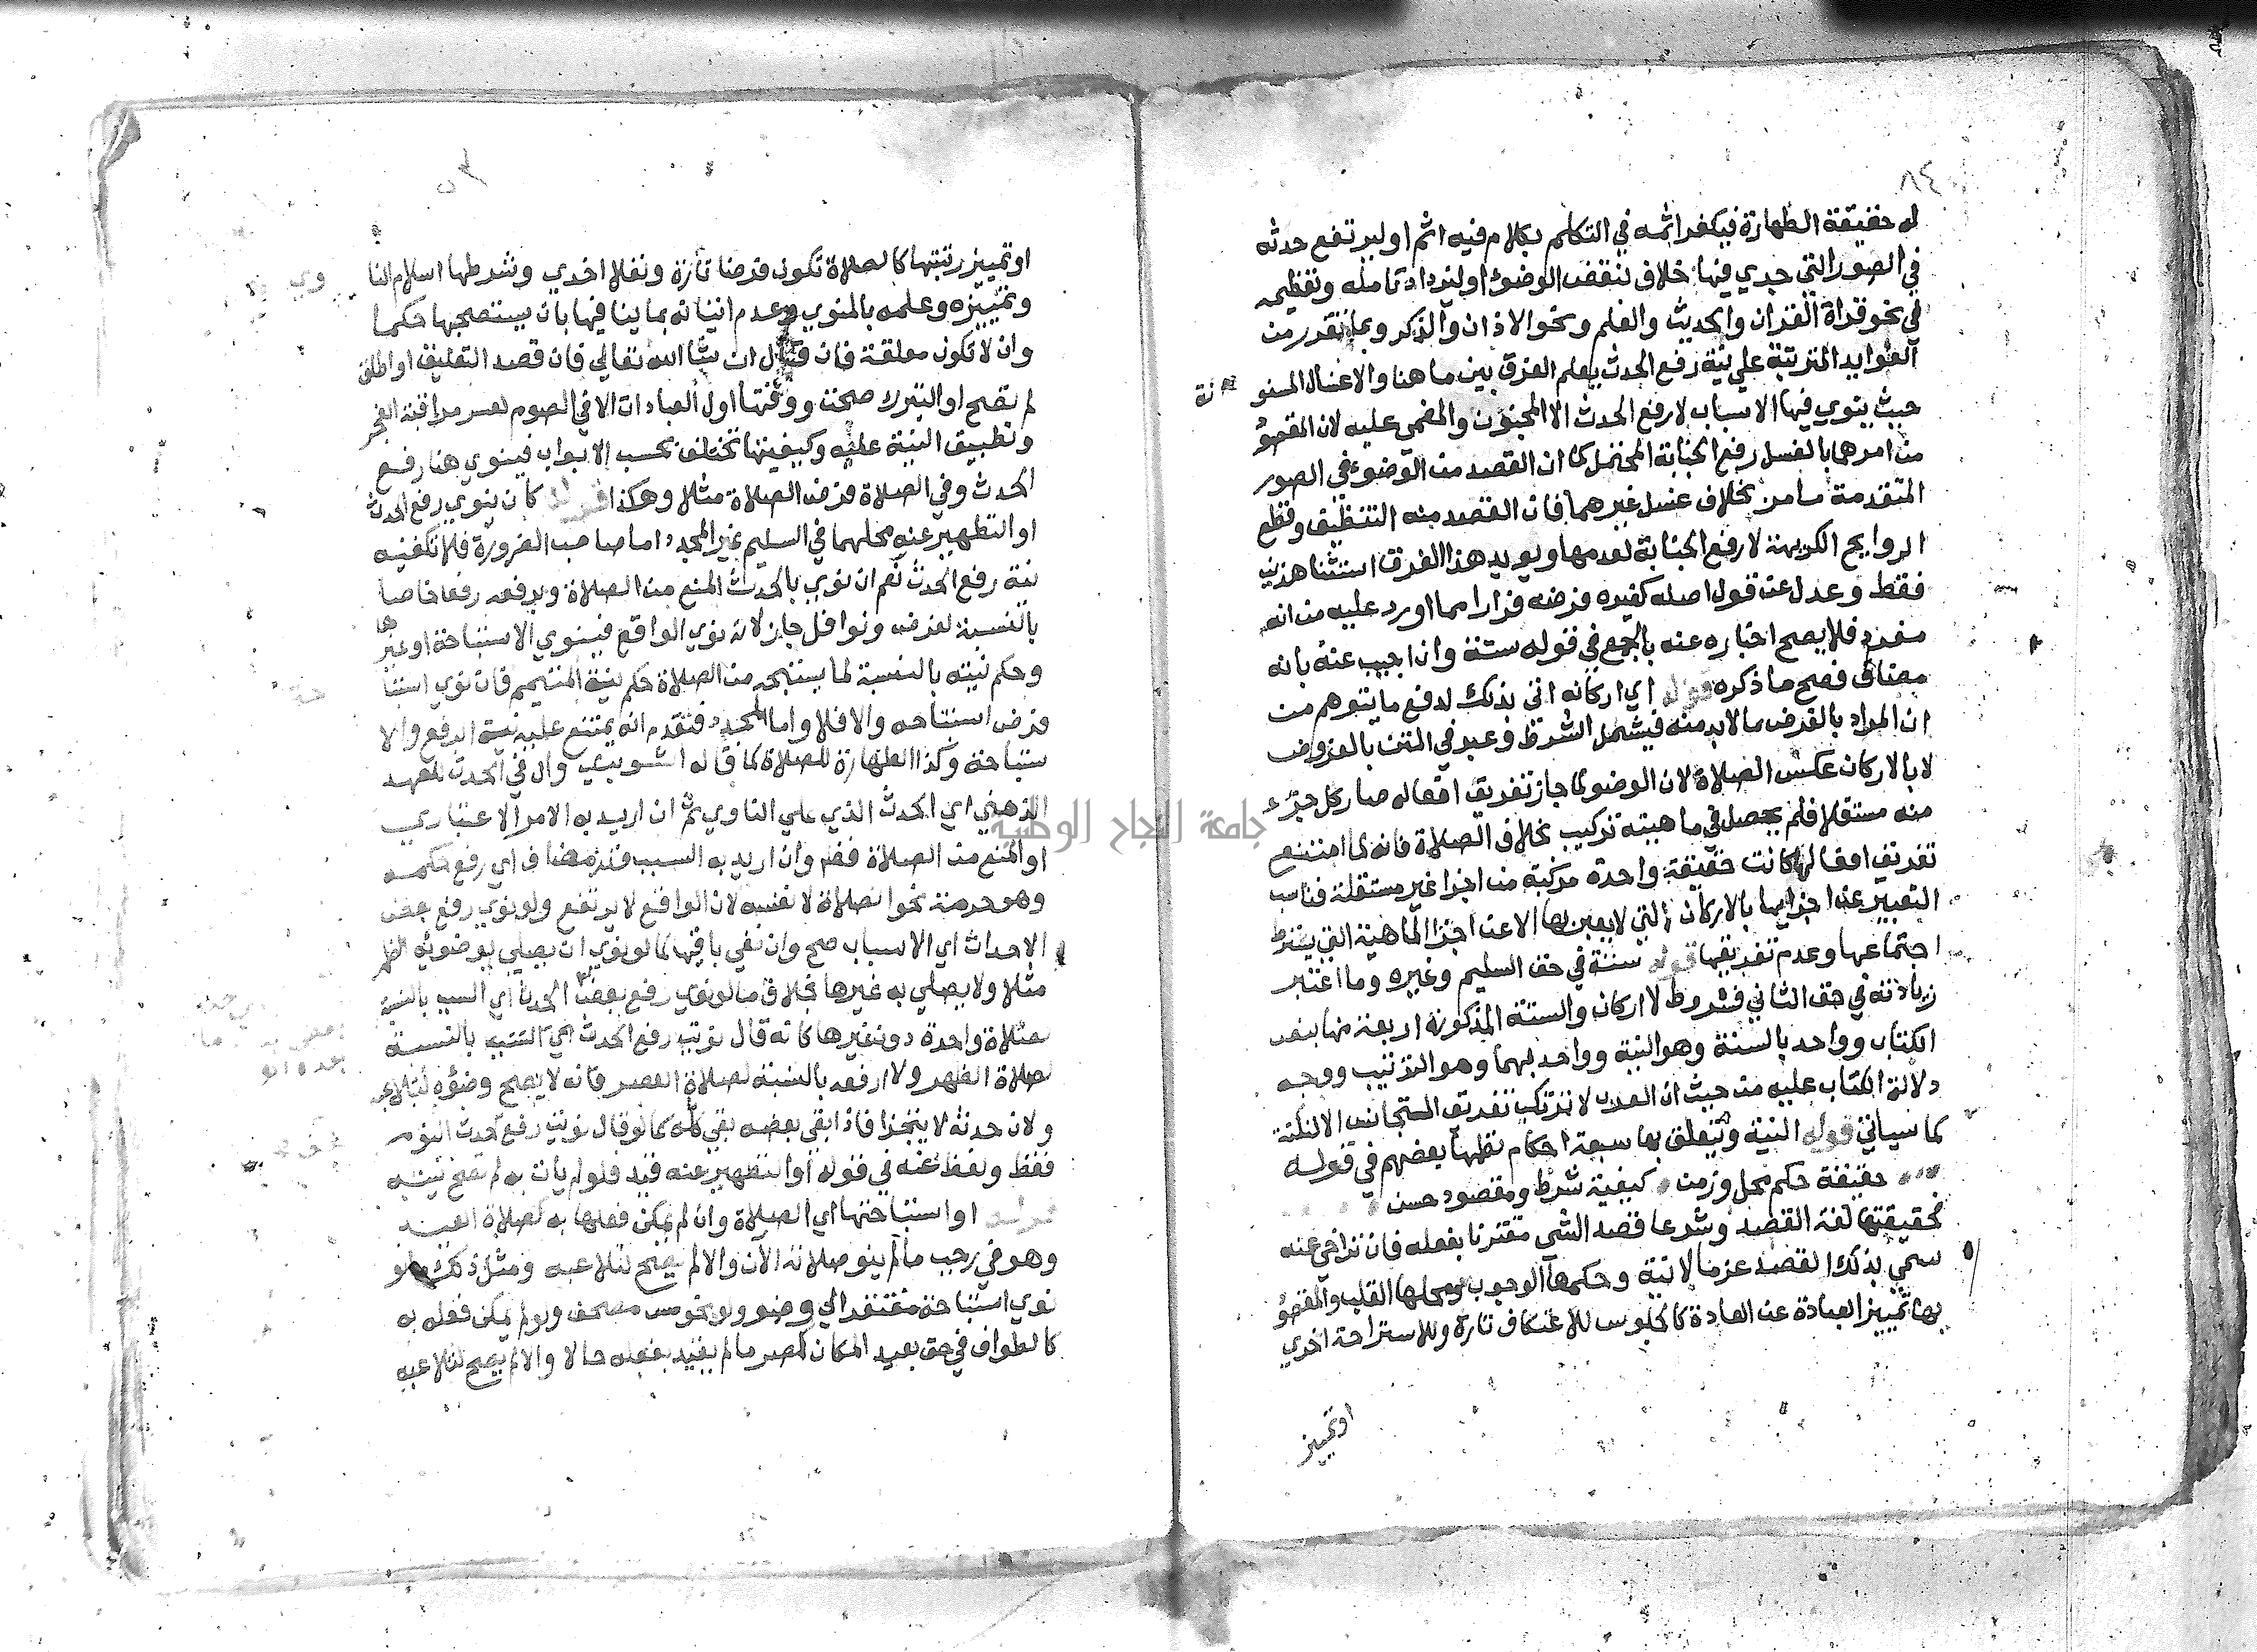 ٨٤
له حقيقة الطهارة فيكفر اثمه في التكلم بكلام فيه اثم او ليرتفع حدثه
في الصور التي جري فيها خلاف لنقض الوضوء او ليزداد تامله وتعظيمه
في نحو قراة القران والحديث والعلم ونحو الاذان والذكر وبما تقرر من
الفوايد المترتبة علي نية رفع الحدث يعلم الفرق بين ما هنا والاغسال المسنو نة
حيث ينوي فيها الاسباب لا رفع الحدث الا المجنون والمغمي عليه لان المقصود
من امرهما بالغسل رفع الجنابة المحتمل كما ان القصد من الوضوء في الصور
المتقدمة ما مر بخلاف غسل غيرهما فان القصد منه التنظيف وقطع
الروايح الكريهة لا رفع الجنابة لعدمها ويويد هذا الفرق استثنا هذين
فقط وعدل عن قول اصله كغيره فرضه فرارا مما اورد عليه من انه
مفرد فلا يصح اخباره عنه بالجمع في قوله ستة وان اجيب عنه بانه
مضاف فصح ما ذكره قوله اي اركانه اتي بذلك لدفع ما يتوهم من
ان المراد بالفرض ما لا بد منه فيشمل الشرط وعبر في المتن بالفروض
لا بالاركان عكس الصلاة لان الوضوء لما جاز تفريق افعاله صار كل جزء
منه مستقلا فلم يحصل في ماهيته تركيب بخلاف الصلاة فانه لما امتنع
تفريق افعالها كانت حقيقة واحدة مركبة من اجزا غير مستقلة فناسب
التعبير عن اجزايها بالاركان التي لا يعبر بها الا عن اجزا الماهية التي يشترط
اجتماعها وعدم تفريقها قوله ستة في حق السليم وغيره وما اعتبر
زيادته في حق الثاني فشروط لا اركان والستة المذكورة اربعة منها بنص
الكتاب وواحد بالسنة وهو النية وواحد بهما وهو الترتيب ووجه
دلالة الكتاب عليه من حيث ان العرب لا ترتكب تفريق المتجانس الا لنكتة
كما سياتي قوله النية وتتعلق بها سبعة احكام نظمها بعضهم في قوله
حقيقة حكم محل وزمن كيفية شرط ومقصود حسن
فحقيقتها لغة القصد وشرعا قصد الشي مقترنا بفعله فان تراخي عنه
سمي بذلك القصد عزما لا نية وحكمها الوجوب ومحلها القلب والمقصود
بها تمييز العبادة عن العادة كالجلوس للاعتكاف تارة وللاستراحة اخري
او تمييز
او تمييز رتبتها كالصلاة تكون فرضا تارة ونفلا اخري وشرطها اسلام النا وي
وتمييزه وعلمه بالمنوي وعدم اتيانه بما ينافيها بان يستصحبها حكما
وان لا تكون معلقة فان قال ان شا الله تعالي فان قصد التعليق او اطلق
لم تصح او التبرك صحت ووقتها اول العبادات الا في الصوم لعسر مراقبة الفجر
وتطبيق النية عليه وكيفيتها تختلف بحسب الابواب فينوي هنا رفع
الحدث وفي الصلاة فرض الصلاة مثلا وهكذا قوله كان ينوي رفع الحدث
او التطهير عنه محلهما في السليم غير المجدد اما صاحب الضرورة فلا تكفيه
نية رفع الحدث نعم ان نوي بالحدث المنع من الصلاة وبرفعه رفعا خاصا
بالنسبة لفرض ونوافل جاز لانه نوي الواقع فينوي الاستباحة او غيرها
وحكم نيته بالنسبة لما يستبيحه من الصلاة حكم نية المتيمم فان نوي استبا حة
فرض استباحه والا فلا واما المجدد فتقدم انه يمتنع عليه نية الرفع والا
ستباحة وكذا الطهارة للصلاة كما قاله الشوبري وال في الحدث للعهد
الذهني اي الحدث الذي علي الناوي ثم ان اريد به الامر الاعتباري
او المنع من الصلاة فظ وان اريد به السبب قدر مضاف اي رفع حكمه
وهو حرمة نحو الصلاة لا نفسه لان الواقع لا يرتفع ولو نوي رفع بعض
الاحداث اي الاسباب صح وان نفي باقيها كما لو نوي ان يصلي بوضوئه الظهر
مثلا ولا يصلي به غيرها بخلاف ما لو نوي رفع بعض الحدث اي السبب بالنسبة
لصلاة واحدة دون غيرها كانه قال نويت رفع الحدث اي السبب بالنسبة
لصلاة الظهر ولا ارفعه بالنسبة لصلاة العصر فانه لا يصح وضؤه لتلاعبه
ولان حدثه لا يتجزا فاذا بقي بعضه بقي كله كما لو قال نويت رفع حدث النوم
فقط ولفظ عنه في قوله او التطهير عنه قيد فلو لم يات به لم تصح نيته
قوله او استباحتها اي الصلاة وان لم يمكن فعلها به كصلاة العيد
وهو في رجب ما لم ينو صلاته الان والا لم يصح لتلاعبه ومثل ذلك ما لو
نوي استباحة مفتقر الي وضوء ولو نحو مس مصحف ولو لم يمكن فعله به
كالطواف في حق بعيد المكان كمصر ما لم يقيد بفعله حالا والا لم يصح لتلاعبه
جامعة النجاح الوطنية